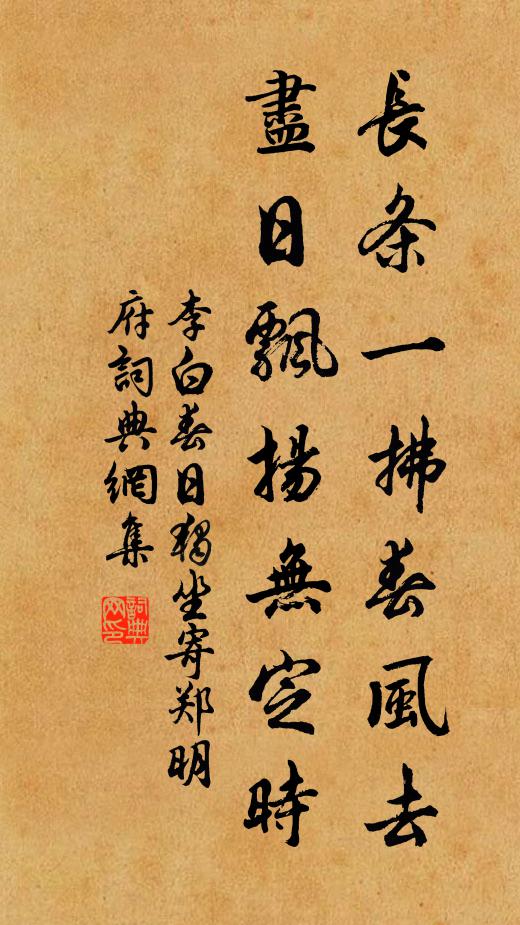 長条一拂春風去
盡日飄揚無定時
李白春日獨坐寄郑明
府詞典網集
詞典
网印